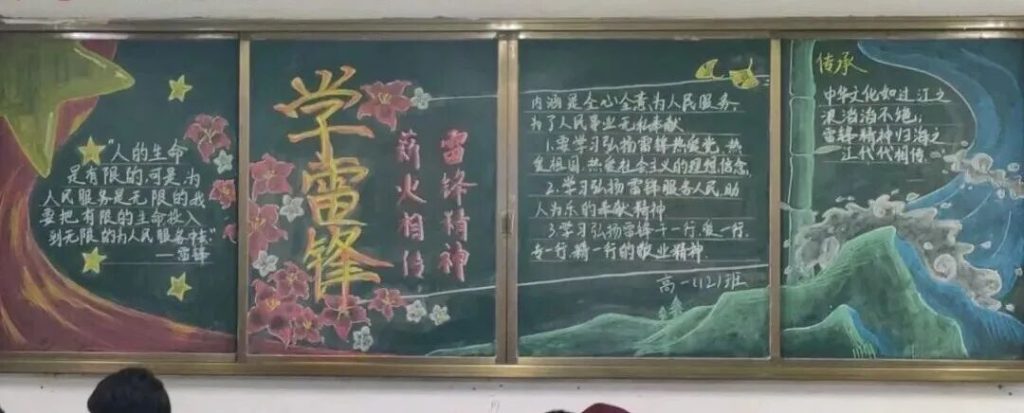 “人的生命
是有限的,可是,为
人民服务是无限的我
要把有限的生命投入
到无限的为人民服务去”
—雷锋
学雷锋
雷锋精神
薪火相传
内涵是全心全意为人民服务,
为了人民事业无私奉献
1.要学习弘扬雷锋热爱党、热
爱祖国、热爱社会主义的理想信念
2.学习弘扬雷锋服务人民、助
人为乐的奉献精神
3.学习弘扬雷锋干一行、爱一行,
专一行、精一行的敬业精神.
高一(12)班
传承
中华文化如过江之
浪滔滔不绝,
雷锋精神归海之
江代代相传